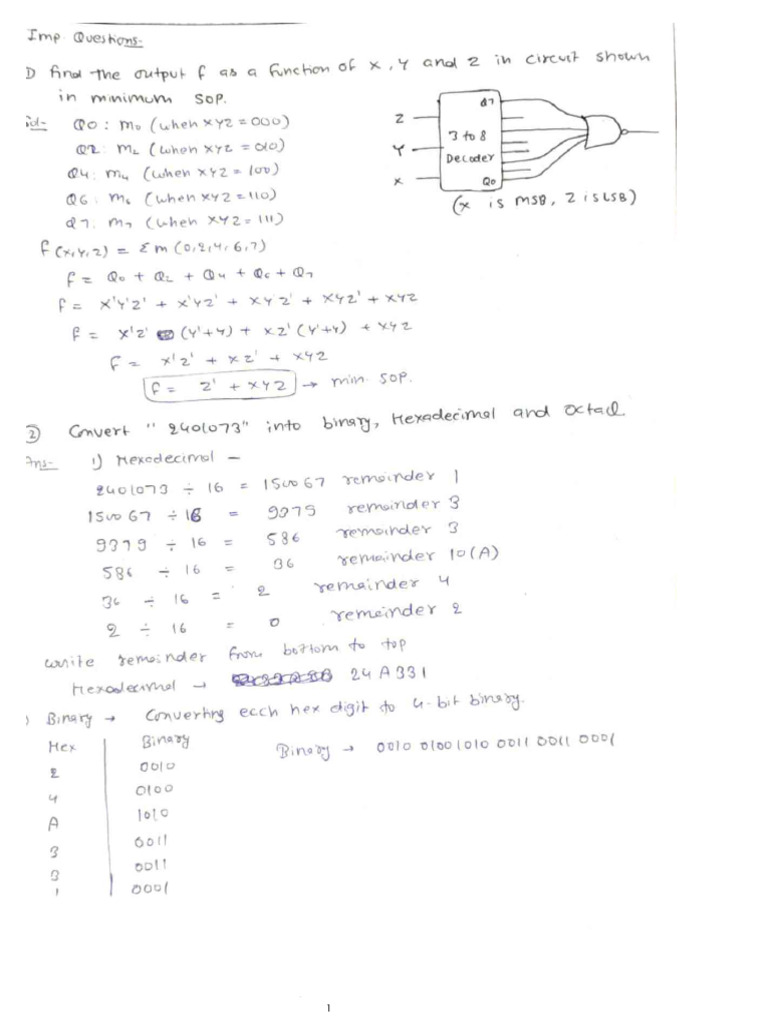 Imp Questions.
1) find the output f as a function of x, y and z in circuit shown
in minimum SOP.
sol- Q0 : m0 (when xyz = 000)
Q2 : m2 (when xyz = 010)
Q4 : m4 (when xyz = 100)
Q6 : m6 (when xyz = 110)
Q7 : m7 (when xyz = 111)
Z
Y
X
Q7
3 to 8
Decoder
Q0
(x is MSB, Z is LSB)
f(x,y,z) = Σm(0,2,4,6,7)
f = Q0 + Q2 + Q4 + Q6 + Q7
f = x'y'z' + x'yz' + xy'z' + xyz' + xyz
f = x'z' (y'+y) + xz'(y'+y) + xyz
f = x'z' + xz' + xyz
f = z' + xyz → min. SOP.
② Convert "2401073" into binary, Hexadecimal and octal
Ans- 1) Hexodecimol –
2401073 ÷ 16 = 150067 remainder 1
150067 ÷ 16 = 9379 remainder 3
9379 ÷ 16 = 586 remainder 3
586 ÷ 16 = 36 remainder 10(A)
36 ÷ 16 = 2 remainder 4
2 ÷ 16 = 0 remainder 2
write remainder from bottom to top
Hexodecimol → 24A331
) Binary → Converting each hex digit to 4-bit binary.
Hex Binary Binary → 0010 0100 1010 0011 0011 0001
2 0010
4 0100
A 1010
3 0011
3 0011
1 0001
1